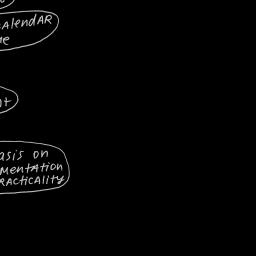 CALENDAR
asis on
MENTATION
RACTICALITY